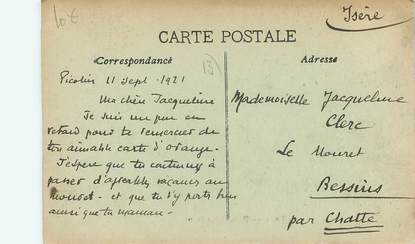 10€
Isère
CARTE POSTALE
Correspondance
Adresse
13
11 Sept 1921
Ma chère Jacqueline
Je suis un peu en
retard pour te remercier de
ton aimable carte d'orange.
J'espère que tu continues à
passer d'agréables vacances au
Mouret. et que tu t'y portes bien
ainsi que ta maman.
Mademoiselle Jacqueline
Clerc
Le Mouret
Bessins
par Chatte